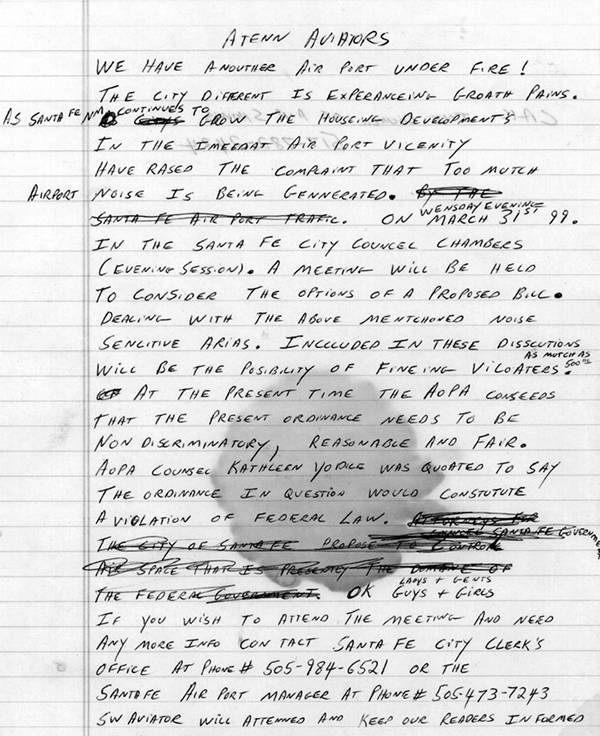 ATENN AVIATORS
WE HAVE ANOUTHER AIR PORT UNDER FIRE!
THE CITY DIFFERENT IS EXPERANCEING GROATH PAINS.
AS SANTA FE NM CONTINUES TO GROW THE HOUSEING DEVELOPMENTS
IN THE IMEEDAT AIR PORT VICENITY
HAVE RASED THE COMPLAINT THAT TOO MUTCH
AIRPORT NOISE IS BEING GENNERATED. BY THE
SANTA FE AIR PORT TRAFIC. ON WENSDAY EVENING MARCH 31ST 99.
IN THE SANTA FE CITY COUNCEL CHAMBERS
(EVENING SESSION). A MEETING WILL BE HELD
TO CONSIDER THE OPTIONS OF A PROPOSED BILL.
DEALING WITH THE ABOVE MENTCHONED NOISE
SENCITIVE ARIAS. INCCLUDED IN THESE DISSCUTIONS
WILL BE THE POSIBILITY OF FINEING VILOATERS. AS MUTCH AS 500.00
AT THE PRESENT TIME THE AOPA CONSEEDS
THAT THE PRESENT ORDINANCE NEEDS TO BE
NON DISCRIMINATORY, REASONABLE AND FAIR.
AOPA COUNSEL KATHLEEN YODICE WAS QUOATED TO SAY
THE ORDINANCE IN QUESTION WOULD CONSTUTUTE
A VIOLATION OF FEDERAL LAW. ATTORNEYS FOR
COUNCEL SANTA FE GOVERNMENT
THE CITY OF SANTA FE PROPOSE TO CONTROL
AIR SPACE THAT IS PRESENTLY THE DOMAINE OF
THE FEDERAL GOVERNMENT. OK LADYS + GENTS GUYS + GIRLS
IF YOU WISH TO ATTEND THE MEETING AND NEED
ANY MORE INFO CONTACT SANTA FE CITY CLERK'S
OFFICE AT PHONE # 505-984-6521 OR THE
SANTAFE AIR PORT MANAGER AT PHONE # 505-473-7243
SW AVIATOR WILL ATTENNED AND KEEP OUR READERS INFORMED